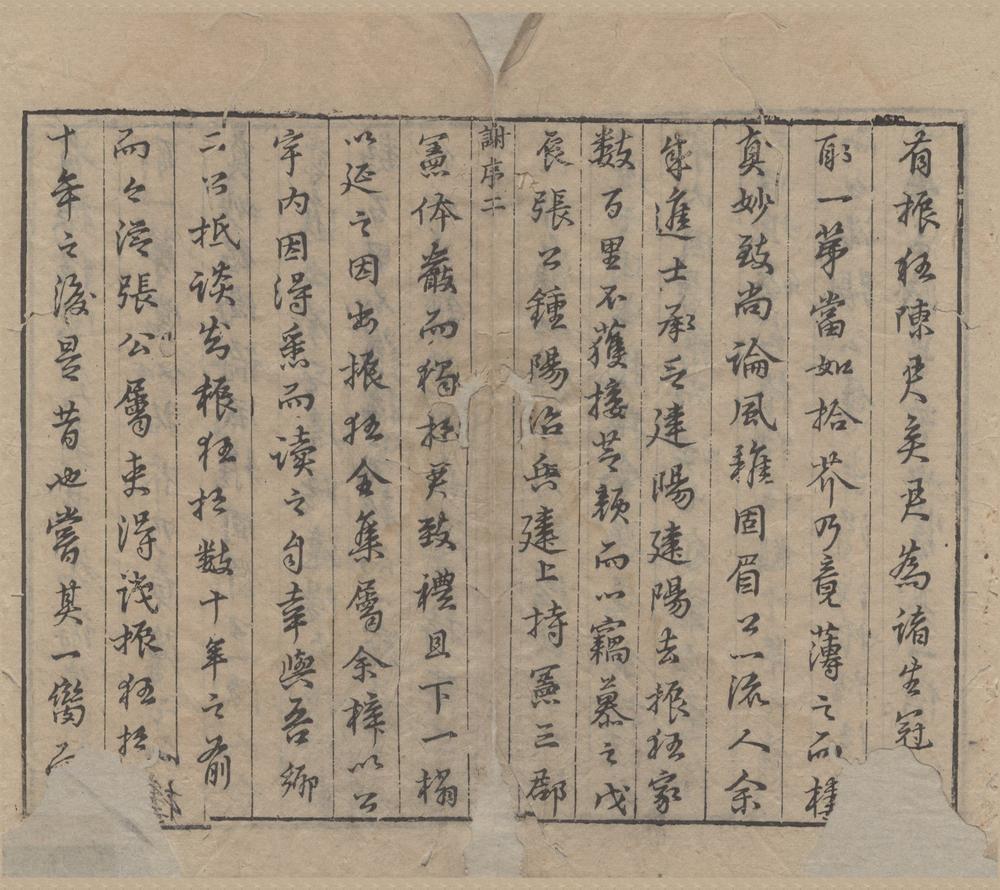 有振狂陳君矣君為諸生冠
取一第當如拾芥乃竟薄之而
真妙致尚論風雅固眉公一流人余
成進士承乏建陽建陽去振狂家
數百里不獲接芝顏而心竊慕之戊
辰張公鍾陽治兵建上持憲三郡
謝序二
憲体嚴而獨於君致禮且下一榻
以延之因出振狂全集屬余梓以公
宇內因得悉而讀之自幸與吾鄉
二公抵談於振狂於數十年之前
而今從張公屬吏得識振狂於
十年之後是昔也嘗其一臠